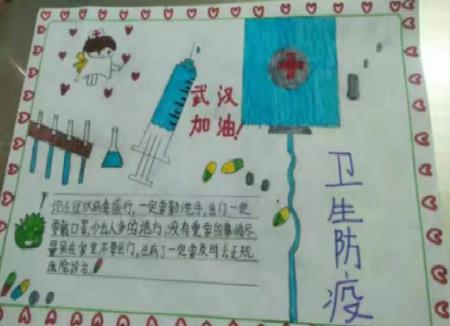 武汉
加油!
卫生防疫
冠状病毒盛行,一定要勤洗手,出门一定
要戴口罩,少去人多的地方,没有重要的事情尽
量呆在家里不要出门,生病了一定要及时去正规
医院诊治。